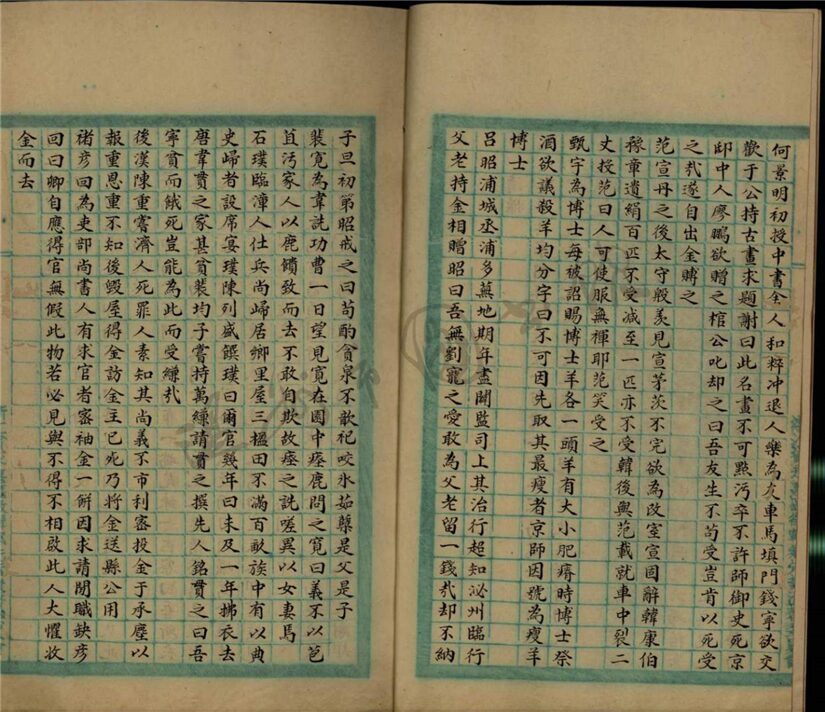 何景明初授中書舍人和粹冲退人樂為友車馬填門錢寧欲交
歡于公持古畫求題謝曰此名畫不可點污卒不許師御史死京
邸中人廖鵬欲贈之棺公叱却之曰吾友生不苟受豈肯以死受
之㢤遂自出金賻之
范宣丹之後太守殷羡見宣茅茨不完欲為改室宣固辭韓康伯
豫章遺絹百匹不受減至一匹亦不受韓後與范載就車中裂二
丈投范曰人可使服無褌耶范笑受之
甄宇為博士每被詔賜博士羊各一頭羊有大小肥瘠時博士祭
酒欲議殺羊均分宇曰不可因先取其最瘦者京師因號為瘦羊
博士
吕昭浦城丞浦多蕪地期年盡闢監司上其治行超知泌州臨行
父老持金相贈昭曰吾無劉寵之愛敢為父老留一錢㢤却不納
子旦初第昭戒之曰苟酌貪泉不歆祀咬氷茹蘗是父是子
裴寛為韋詵功曹一日望見寛在園中瘞鹿問之寛曰義不以苞
苴污家人以鹿饋致而去不敢自欺故瘞之詵嗟異以女妻焉
石璞臨漳人仕兵尚歸居鄉里屋三楹田不滿百畝族中有以典
史歸者設席宴璞陳列盛饌璞曰爾官幾年曰未及一年拂衣去
唐韋貫之家甚貧裴均子嘗持萬縑請貫之撰先人銘貫之曰吾
寧貧而餓死豈能為此而受縑㢤
後漢陳重嘗濟人死罪人素知其尚義不市利密投金于承塵以
報重恩重不知後毁屋得金訪金主已死乃將金送縣公用
褚彦回為吏部尚書人有求官者密袖金一餅因求請閒職缺彦
回曰卿自應得官無假此物若必見與不得不相啟此人大懼收
金而去